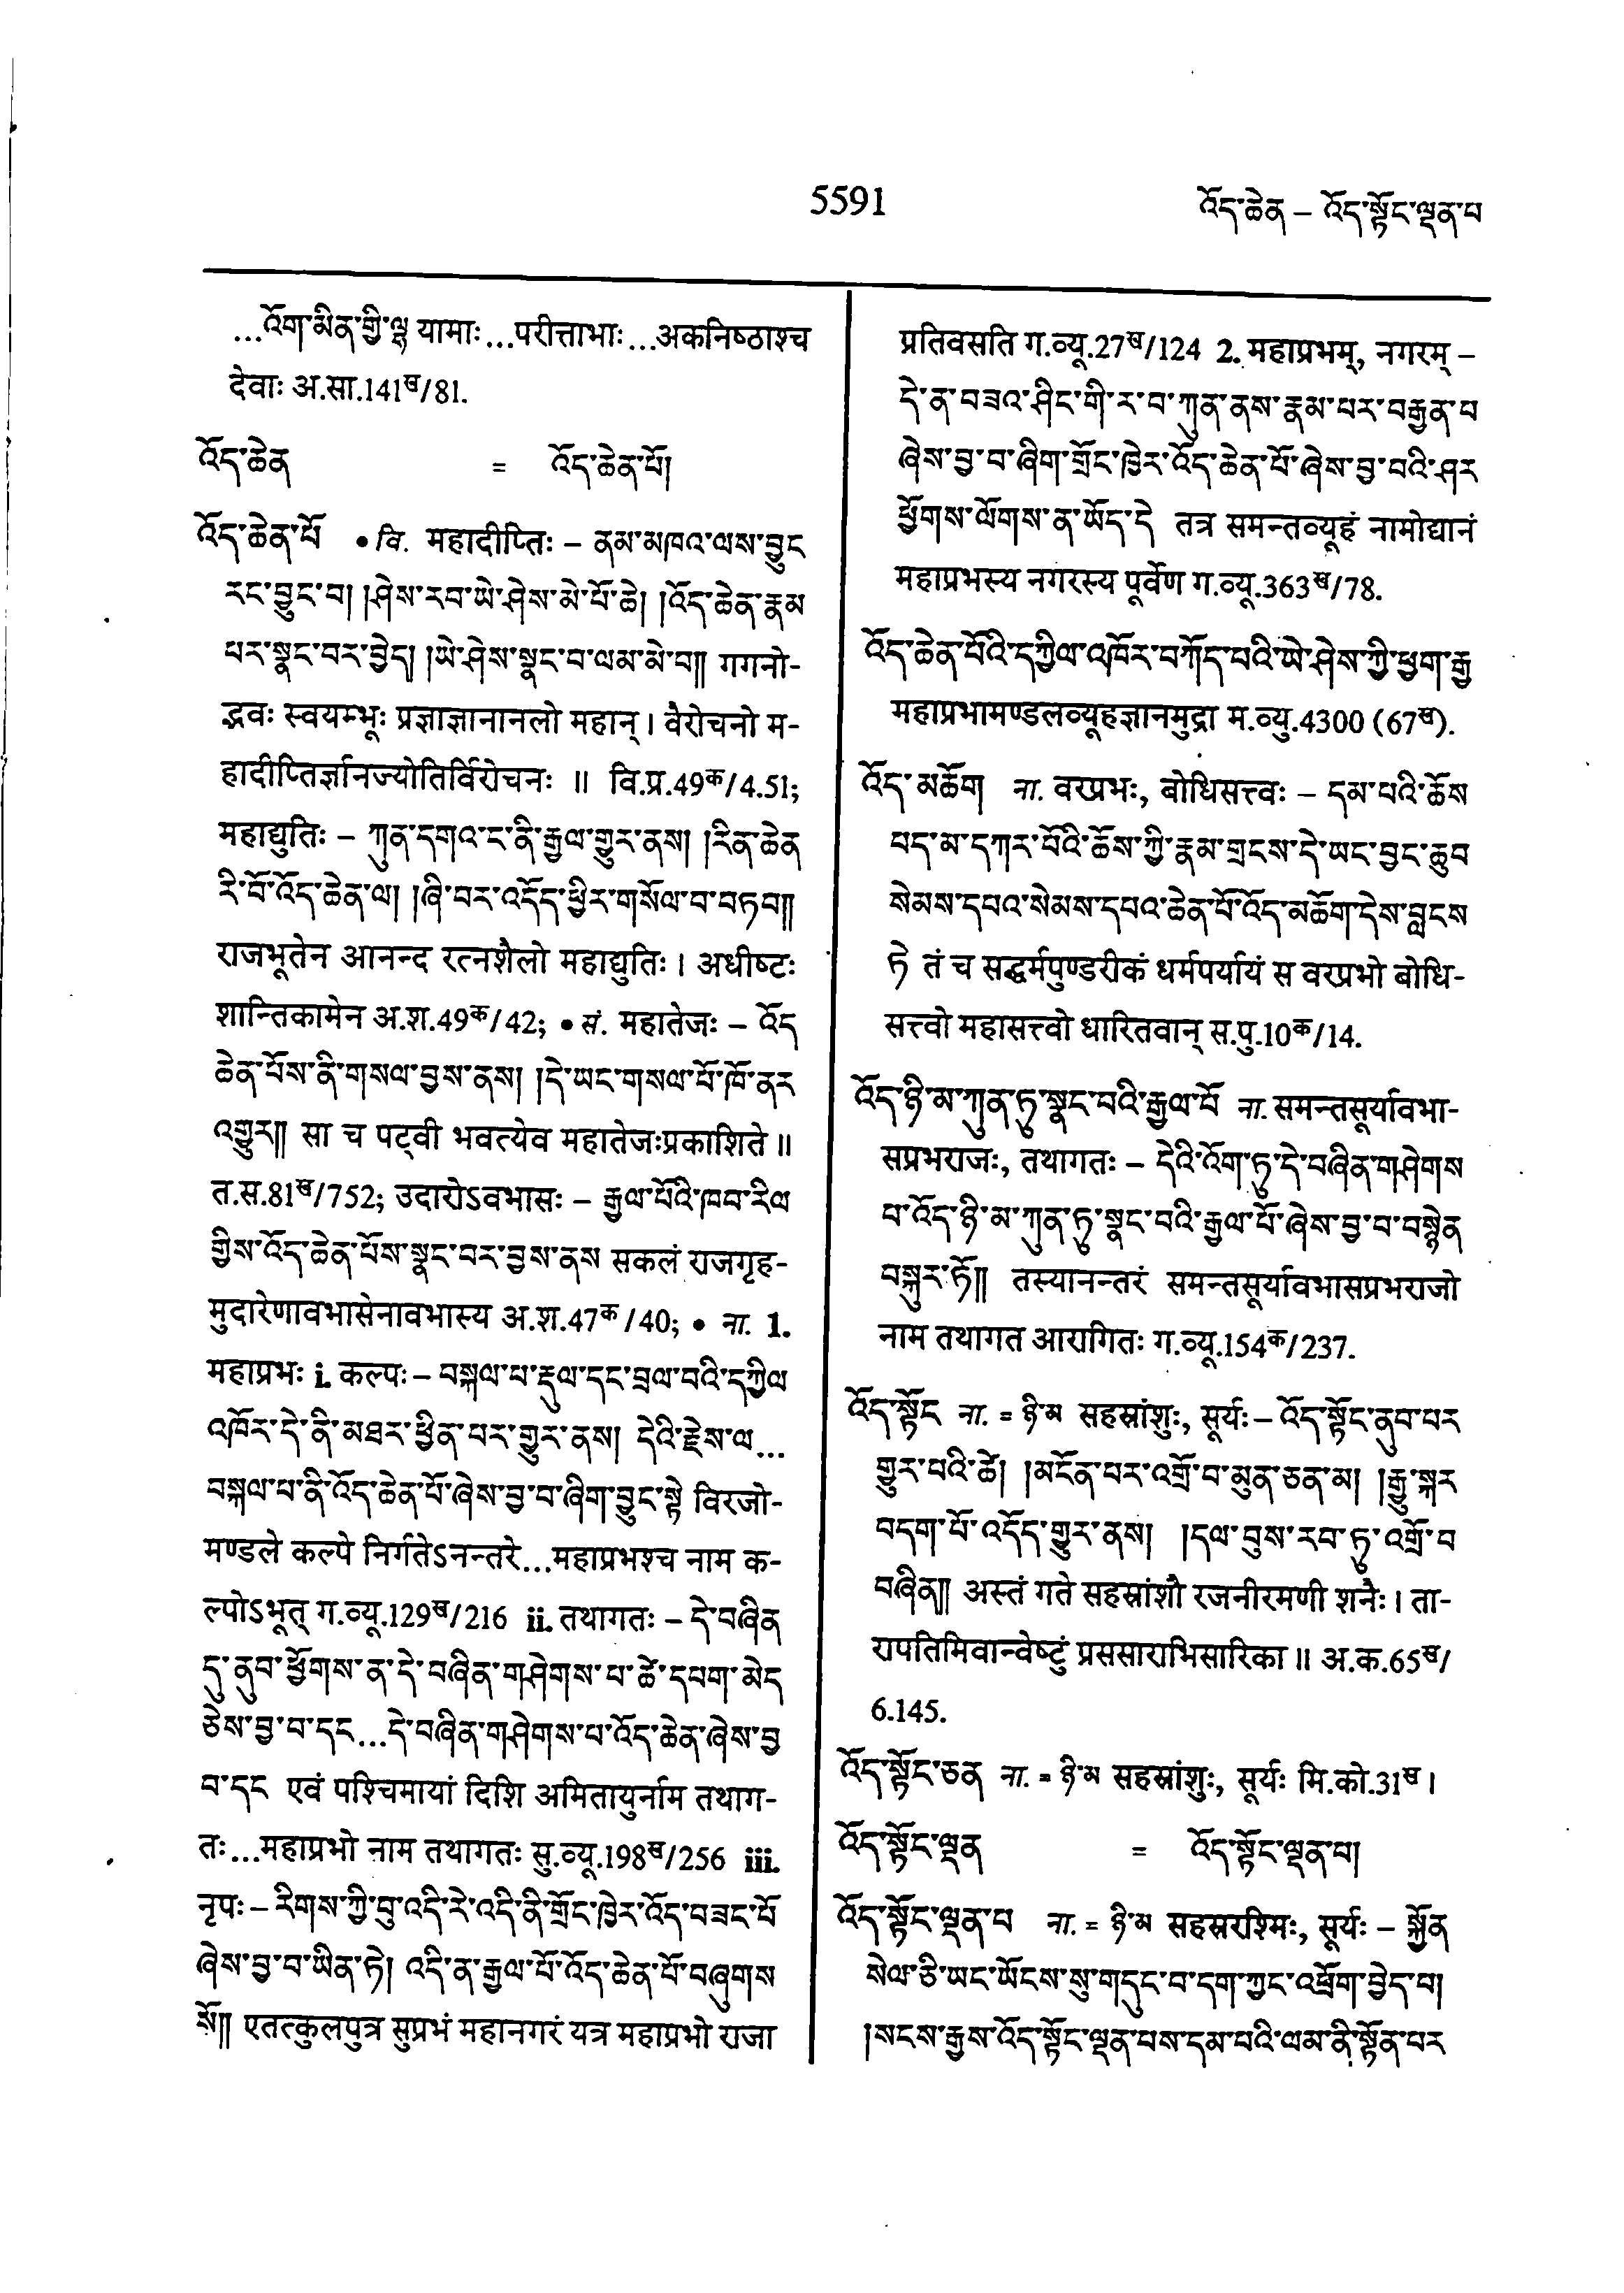 5591
འོད་ཆེན – འོད་སྟོང་ལྡན་པ
...འོག་མིན་གྱི་ལྷ यामाः...परीत्ताभाः...अकनिष्ठाश्च
देवाः अ.सा.141ख/81.
འོད་ཆེན = འོད་ཆེན་པོ།
འོད་ཆེན་པོ • वि. महादीप्तिः – ནམ་མཁའ་ལས་བྱུང
རང་བྱུང་བ། །ཤེས་རབ་ཡེ་ཤེས་མེ་པོ་ཆེ། །འོད་ཆེན་རྣམ
པར་སྣང་བར་བྱེད། །ཡེ་ཤེས་སྣང་བ་ལམ་མེ་བ༎ गगनो-
द्भवः स्वयम्भूः प्रज्ञाज्ञानानलो महान्। वैरोचनो म-
हादीप्तिर्ज्ञानज्योतिर्विरोचनः ॥ वि.प्र.49क/4.51;
महाद्युतिः – ཀུན་དགའ་ང་ནི་རྒྱལ་གྱུར་ནས། །རིན་ཆེན
རི་བོ་འོད་ཆེན་ལ། །ཞི་བར་འདོད་ཕྱིར་གསོལ་བ་བཏབ༎
राजभूतेन आनन्द रत्नशैलो महाद्युतिः। अधीष्टः
शान्तिकामेन अ.श.49क/42; • सं. महातेजः – འོད
ཆེན་པོས་ནི་གསལ་བྱས་ནས། །དེ་ཡང་གསལ་པོ་ཁོ་ནར
འགྱུར༎ सा च पट्वी भवत्येव महातेजःप्रकाशिते ॥
त.स.81ख/752; उदारोऽवभासः – རྒྱལ་པོའི་ཁབ་རིལ
གྱིས་འོད་ཆེན་པོས་སྣང་བར་བྱས་ནས सकलं राजगृह-
मुदारेणावभासेनावभास्य अ.श.47क/40; • ना. 1.
महाप्रभः i. कल्पः – བསྐལ་པ་རྡུལ་དང་བྲལ་བའི་དཀྱིལ
འཁོར་དེ་ནི་མཐར་ཕྱིན་པར་གྱུར་ནས། དེའི་རྗེས་ལ...
བསྐལ་པ་ནི་འོད་ཆེན་པོ་ཞེས་བྱ་བ་ཞིག་བྱུང་སྟེ विरजो-
मण्डले कल्पे निर्गतेऽनन्तरे...महाप्रभश्च नाम क-
ल्पोऽभूत् ग.व्यू.129ख/216 ii. तथागतः – དེ་བཞིན
དུ་ནུབ་ཕྱོགས་ན་དེ་བཞིན་གཤེགས་པ་ཚེ་དཔག་མེད
ཅེས་བྱ་བ་དང...དེ་བཞིན་གཤེགས་པ་འོད་ཆེན་ཞེས་བྱ
བ་དང एवं पश्चिमायां दिशि अमितायुर्नाम तथाग-
तः...महाप्रभो नाम तथागतः सु.व्यू.198ख/256 iii.
नृपः – རིགས་ཀྱི་བུ་འདི་རེ་འདི་ནི་གྲོང་ཁྱེར་འོད་བཟང་པོ
ཞེས་བྱ་བ་ཡིན་ཏེ། འདི་ན་རྒྱལ་པོ་འོད་ཆེན་པོ་བཞུགས
སོ༎ एतत्कुलपुत्र सुप्रभं महानगरं यत्र महाप्रभो राजा
प्रतिवसति ग.व्यू.27ख/124 2. महाप्रभम्, नगरम् –
དེ་ན་བཟའ་ཤིང་གི་ར་བ་ཀུན་ནས་རྣམ་པར་བརྒྱན་པ
ཞེས་བྱ་བ་ཞིག་གྲོང་ཁྱེར་འོད་ཆེན་པོ་ཞེས་བྱ་བའི་ཤར
ཕྱོགས་ལོགས་ན་ཡོད་དེ तत्र समन्तव्यूहं नामोद्यानं
महाप्रभस्य नगरस्य पूर्वेण ग.व्यू.363ख/78.
འོད་ཆེན་པོའི་དཀྱིལ་འཁོར་བཀོད་པའི་ཡེ་ཤེས་ཀྱི་ཕྱག་རྒྱ
महाप्रभामण्डलव्यूहज्ञानमुद्रा म.व्यु.4300 (67ख).
འོད་མཆོག ना. वरप्रभः, बोधिसत्त्वः – དམ་པའི་ཆོས
པད་མ་དཀར་པོའི་ཆོས་ཀྱི་རྣམ་གྲངས་དེ་ཡང་བྱང་ཆུབ
སེམས་དཔའ་སེམས་དཔའ་ཆེན་པོ་འོད་མཆོག་དེས་བླངས
ཏེ तं च सद्धर्मपुण्डरीकं धर्मपर्यायं स वरप्रभो बोधि-
सत्त्वो महासत्त्वो धारितवान् स.पु.10क/14.
འོད་ཉི་མ་ཀུན་ཏུ་སྣང་བའི་རྒྱལ་པོ ना. समन्तसूर्यावभा-
सप्रभराजः, तथागतः – དེའི་འོག་ཏུ་དེ་བཞིན་གཤེགས
པ་འོད་ཉི་མ་ཀུན་ཏུ་སྣང་བའི་རྒྱལ་པོ་ཞེས་བྱ་བ་བསྙེན
བསྐུར་ཏོ༎ तस्यानन्तरं समन्तसूर्यावभासप्रभराजो
नाम तथागत आरागितः ग.व्यू.154क/237.
འོད་སྟོང ना. = ཉི་མ सहस्रांशुः, सूर्यः – འོད་སྟོང་ནུབ་པར
གྱུར་པའི་ཚེ། །མངོན་པར་འགྲོ་བ་མུན་ཅན་མ། །རྒྱུ་སྐར
བདག་པོ་འདོད་གྱུར་ནས། །དལ་བུས་རབ་ཏུ་འགྲོ་བ
བཞིན༎ अस्तं गते सहस्रांशौ रजनीरमणी शनैः। ता-
रापतिमिवान्वेष्टुं प्रससाराभिसारिका ॥ अ.क.65ख/
6.145.
འོད་སྟོང་ཅན ना. = ཉི་མ सहस्रांशुः, सूर्यः मि.को.31ख।
འོད་སྟོང་ལྡན = འོད་སྟོང་ལྡན་པ།
འོད་སྟོང་ལྡན་པ ना. = ཉི་མ सहस्ररश्मिः, सूर्यः – སྐྱོན
སེལ་ཅི་ཡང་ཡོངས་སུ་གདུང་བ་དག་ཀྱང་འཕྲོག་བྱེད་པ།
།སངས་རྒྱས་འོད་སྟོང་ལྡན་པས་དམ་པའི་ལམ་ནི་སྟོན་པར